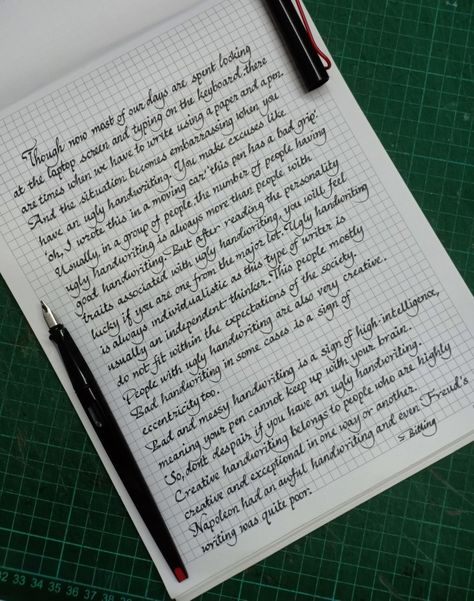 Though now most of our days are spent looking
at the laptop screen and typing on the keyboard, there
are times when we have to write using a paper and a pen.
And the situation becomes embarrassing when you
have an ugly handwriting. You make excuses like
'oh, I wrote this in a moving car' 'this pen has a bad grip'.
Usually in a group of people, the number of people having
ugly handwriting is always more than people with
good handwriting. But after reading the personality
traits associated with ugly handwriting, you will feel
lucky if you are one from the major lot. Ugly handwriting
is always individualistic as this type of writer is
usually an independent thinker. This people mostly
do not fit within the expectations of the society.
People with ugly handwriting are also very creative.
Bad handwriting in some cases is a sign of
eccentricity too.
Bad and messy handwriting is a sign of high-intelligence,
meaning your pen cannot keep up with your brain.
So, dont despair if you have an ugly handwriting.
Creative handwriting belongs to people who are highly
creative and exceptional in one way or another.
Napoleon had an awful handwriting and even Freud's
writing was quite poor.
32 33 34 35 36 37 38 39 40 41 42 43